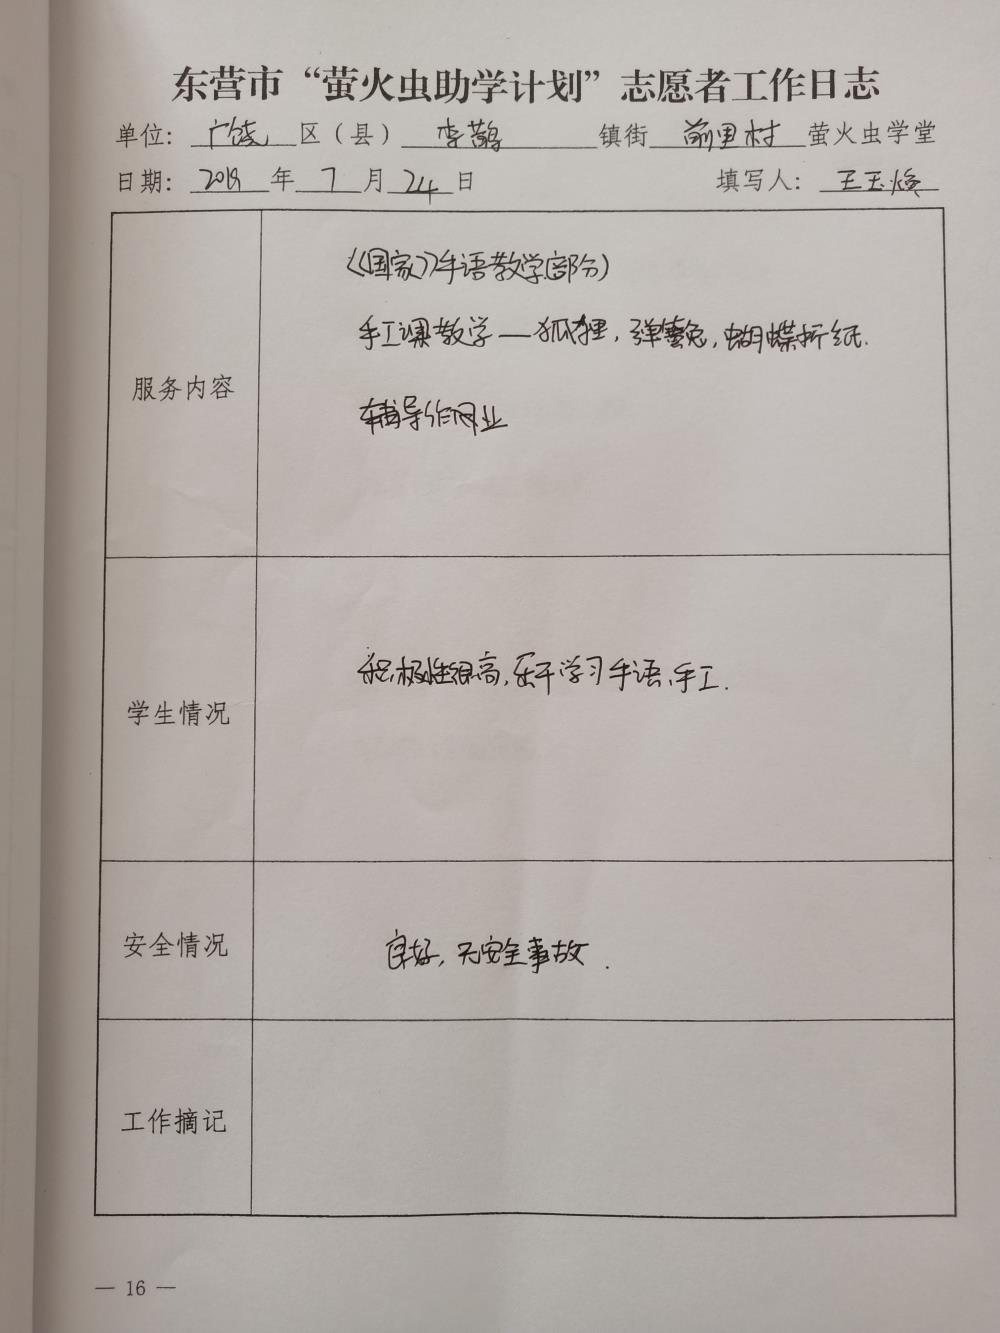 东营市“萤火虫助学计划”志愿者工作日志
单位：广饶区（县）李鹊镇街前里村萤火虫学堂
日期：2019年7月24日 填写人：王玉焕
服务内容
《国家》手语教学(部分)
手工课教学—狐狸，弹簧兔，蝴蝶折纸.
辅导作业
学生情况
积极性很高，乐于学习手语、手工.
安全情况
良好，无安全事故.
工作摘记
— 16 —